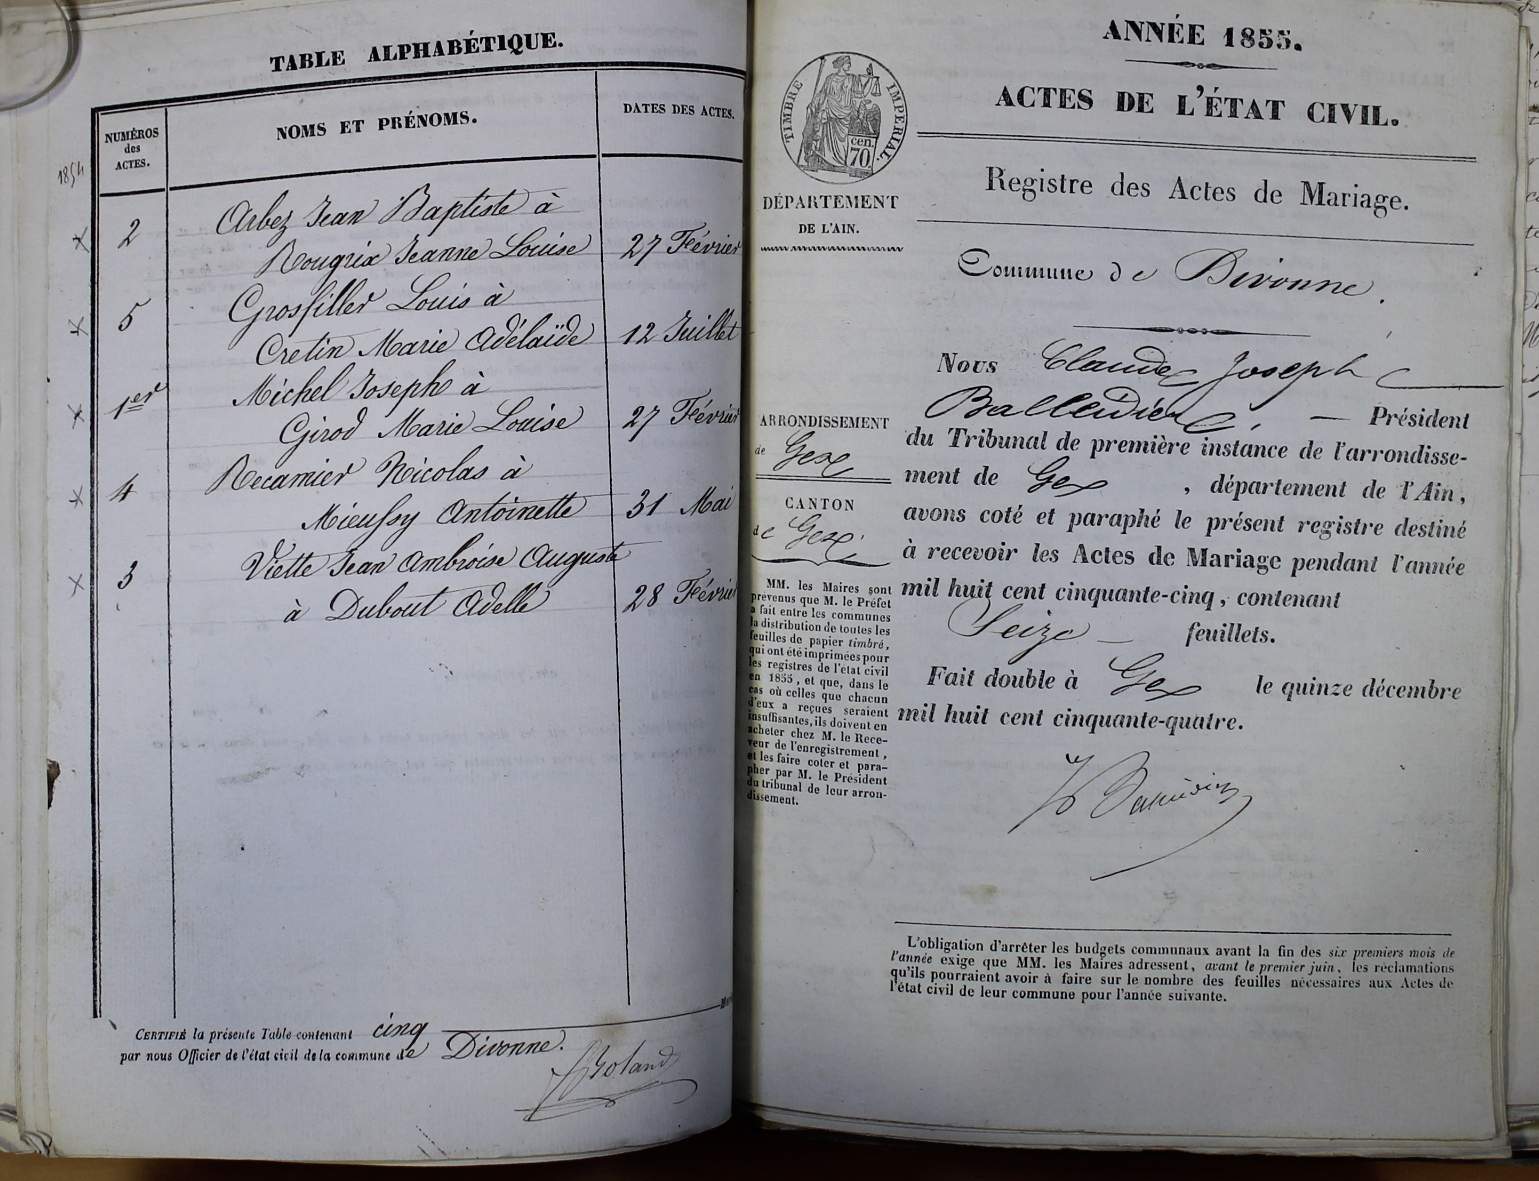 TABLE ALPHABÉTIQUE.
NUMÉROS
des
ACTES.
NOMS ET PRÉNOMS.
DATES DES ACTES.
1854
2 Arbez Jean Baptiste à
Rougrix Jeanne Louise 27 Février
5 Grosfiller Louis à
Cretin Marie Adélaïde 12 Juillet
1er Michel Joseph à
Girod Marie Louise 27 Février
4 Recamier Nicolas à
Mieussy Antoinette 31 Mai
3 Viette Jean Ambroise Auguste
à Dubout Adelle 28 Février
CERTIFIÉ la présente Table contenant cinq
par nous Officier de l'état civil de la commune de Divonne.
Roland
ANNÉE 1855.
ACTES DE L'ÉTAT CIVIL.
TIMBRE IMPERIAL.
cen.
70
DÉPARTEMENT
DE L'AIN.
Registre des Actes de Mariage.
Commune de Divonne.
ARRONDISSEMENT
de Gex
CANTON
de Gex
MM. les Maires sont
prévenus que M. le Préfet
a fait entre les communes
la distribution de toutes les
feuilles de papier timbré,
qui ont été imprimées pour
les registres de l'état civil
en 1855, et que, dans le
cas où celles que chacun
d'eux a reçues seraient
insuffisantes, ils doivent en
acheter chez M. le Rece-
veur de l'enregistrement,
et les faire coter et para-
pher par M. le Président
du tribunal de leur arron-
dissement.
Nous Claude Joseph
Balleidier, — Président
du Tribunal de première instance de l'arrondisse-
ment de Gex, département de l'Ain,
avons coté et paraphé le présent registre destiné
à recevoir les Actes de Mariage pendant l'année
mil huit cent cinquante-cinq, contenant
Seize — feuillets.
Fait double à Gex le quinze décembre
mil huit cent cinquante-quatre.
L'obligation d'arrêter les budgets communaux avant la fin des six premiers mois de
l'année exige que MM. les Maires adressent, avant le premier juin, les réclamations
qu'ils pourraient avoir à faire sur le nombre des feuilles nécessaires aux Actes de
l'état civil de leur commune pour l'année suivante.